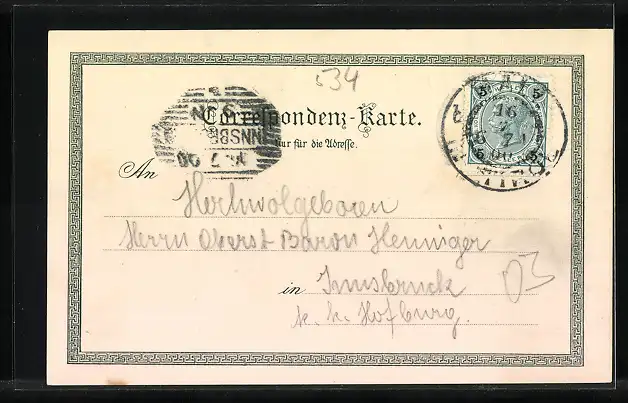 534
Correspondenz-Karte.
Nur für die Adresse.
NNSB
7 00
5 5
16
7
An
Hochwolgeboren
Herrn Oberst Baron Henniger
in Innsbruck
k. k. Hofburg.
03